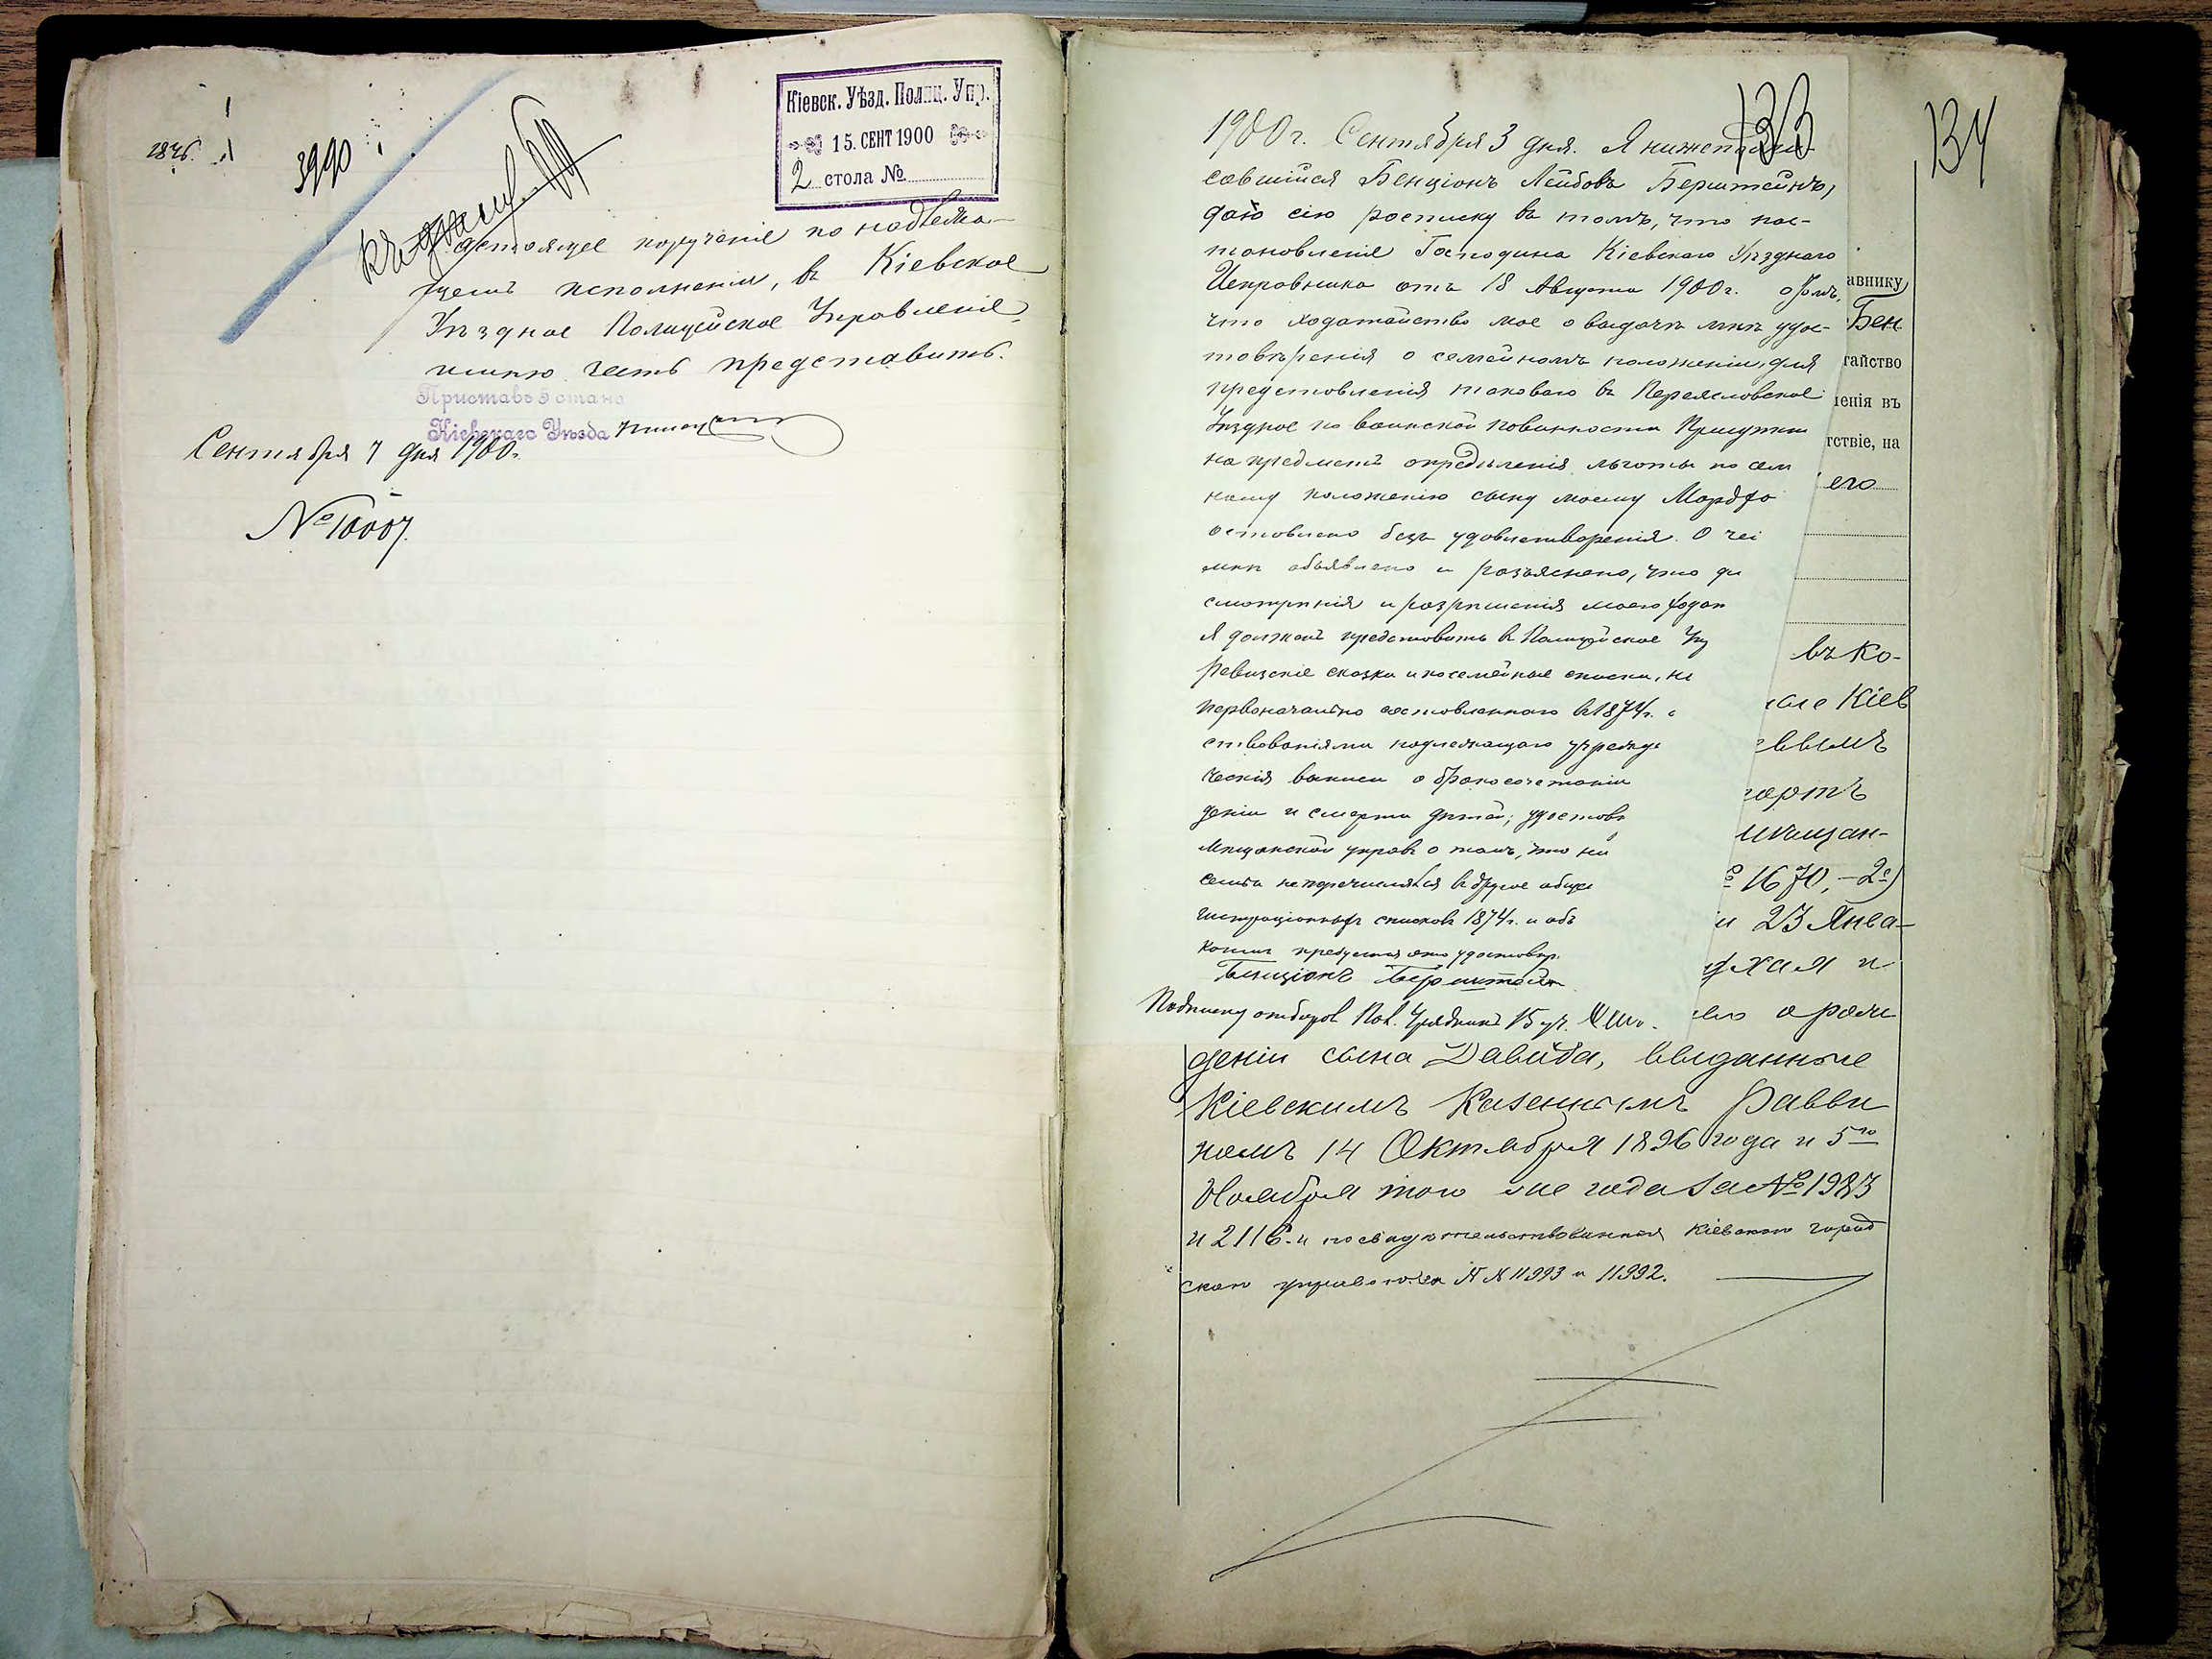 3990
Кіевск. Уѣзд. Полиц. Упр.
15. СЕНТ 1900
2 стола №
Настоящее порученіе по надлежа-
щемъ исполненіи, въ Кіевское
Уѣздное Полицейское Управленіе
имѣю честь представить.
Приставъ стана
Кіевскаго Уѣзда
Сентября 7 дня 1900 г.
№ 10007.
133
1900 г. Сентября 3 дня. Я нижеподпи-
савшійся Бенціонъ Лейбовъ Берштейнъ,
даю сію росписку въ томъ, что пос-
тановленіе Господина Кіевскаго Уѣзднаго
Исправника отъ 18 Августа 1900 г. о томъ,
что ходатайство мое о выдачѣ мнѣ удос-
товѣренія о семейномъ положеніи, для
представленія таковаго въ Переяславское
Уѣздное по воинской повинности Присутст
на предметъ опредѣленія льготы по сем
ному положенію сыну моему Мордхо
оставлено безъ удовлетворенія. О че
мнѣ объявлено и разъяснено, что д
смотрѣнія и разрѣшенія моего ходат
я долженъ представить въ Полицейское Уп
Ревизскіе сказки и посемейные списки, н
первоначально составленнаго въ 1874 г. с
ствованіями подлежащаго учрежд
ческія выписи о бракосочетаніи
деніи и смерти дѣтей; удостов
Мѣщанской управѣ о томъ, что н
семья не перечислялся въ другое обще
гистраціонныхъ списковъ 1874 г. и объ
копіи
Бенціонъ Берштейн
Подписку отобралъ Пол. Урядникъ 15 уч.
134
авнику
Бен
тайство
ленія въ
тствіе, на
его
въ Ко-
Кіев
евымъ
портъ
мѣщан-
№ 1670, - 2е)
и 23 Янва-
и
о рож
деніи сына Давида, выданные
Кіевскимъ Казеннымъ Равви
номъ 14 Октября 1896 года и 5го
Ноября того же года за № 1983
и 2116. и посвидѣтельствованная Кіевскою город
скою управою за №№ 11993 и 11992.